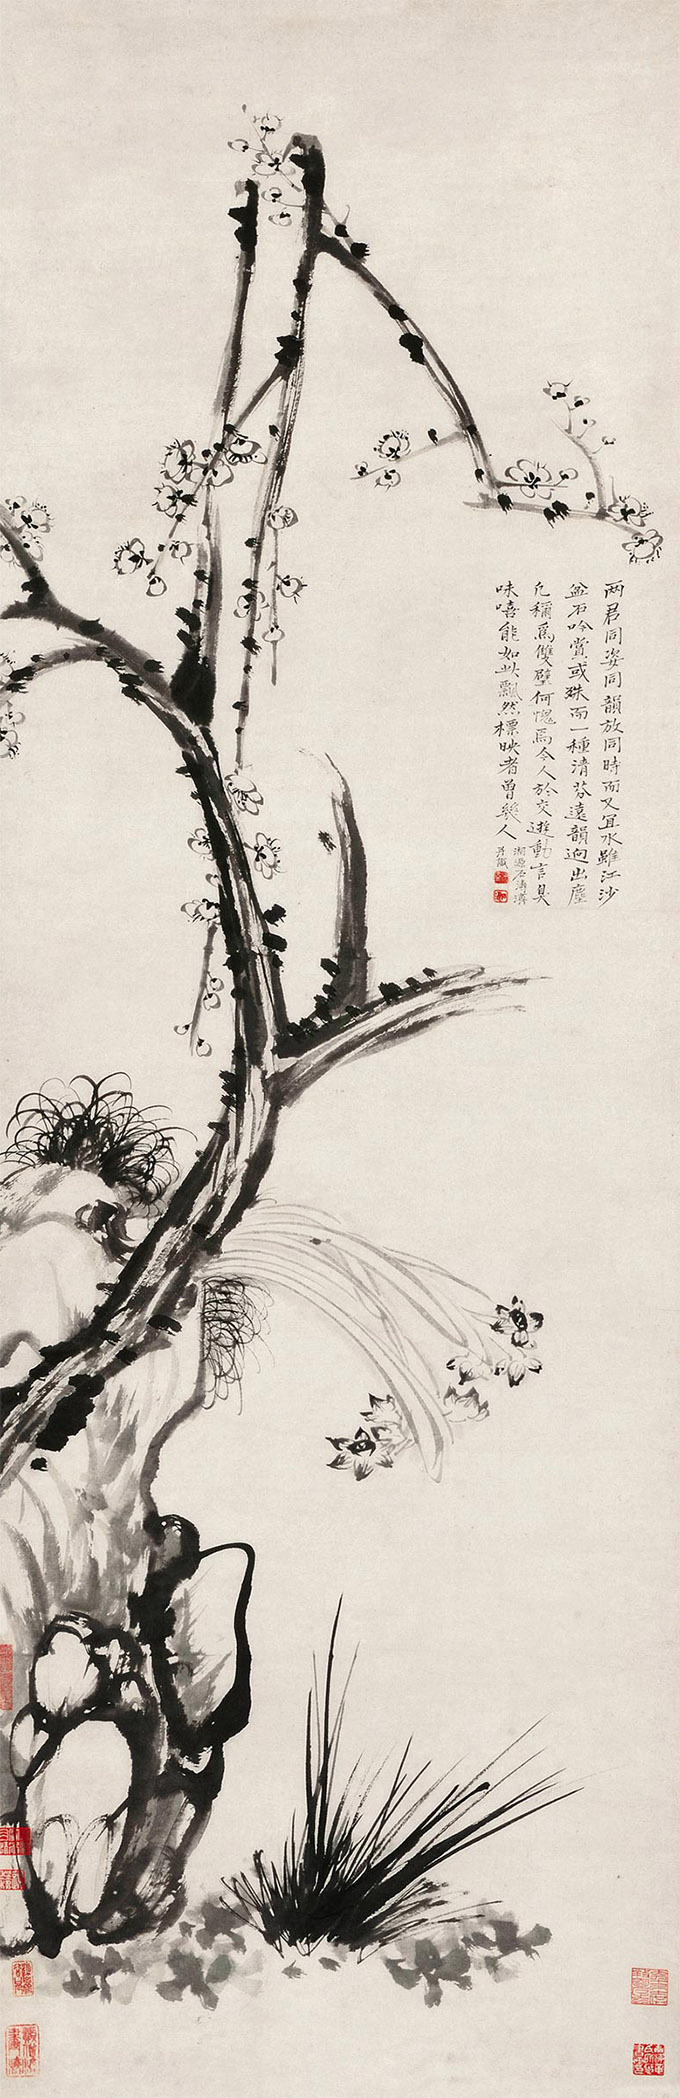 两君同姿同韻放同時而又宜水雖江沙
盆石吟賞或殊而一種清芬遠韻逈出塵
凡稱爲雙璧何愧焉今人於交遊動言臭
味嘻能如此飄然標映者曾幾人
湘源石濤濟
并識